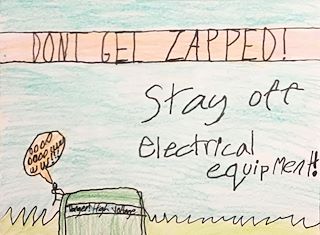 DONT GET ZAPPED!
Stay off
electrical
equipment!
Danger! High Voltage